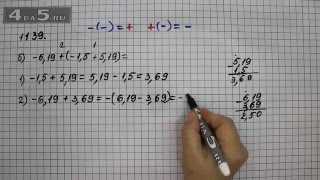 4DA5.RU
-(-)=+ +(-)=-
1139.
2 1
б) -6,19 + (-1,5 + 5,19) =
1) -1,5 + 5,19 = 5,19 - 1,5 = 3,69
2) -6,19 + 3,69 = -(6,19 - 3,69) = -
- 5,19
1,5
3,69
- 6,19
3,69
2,50